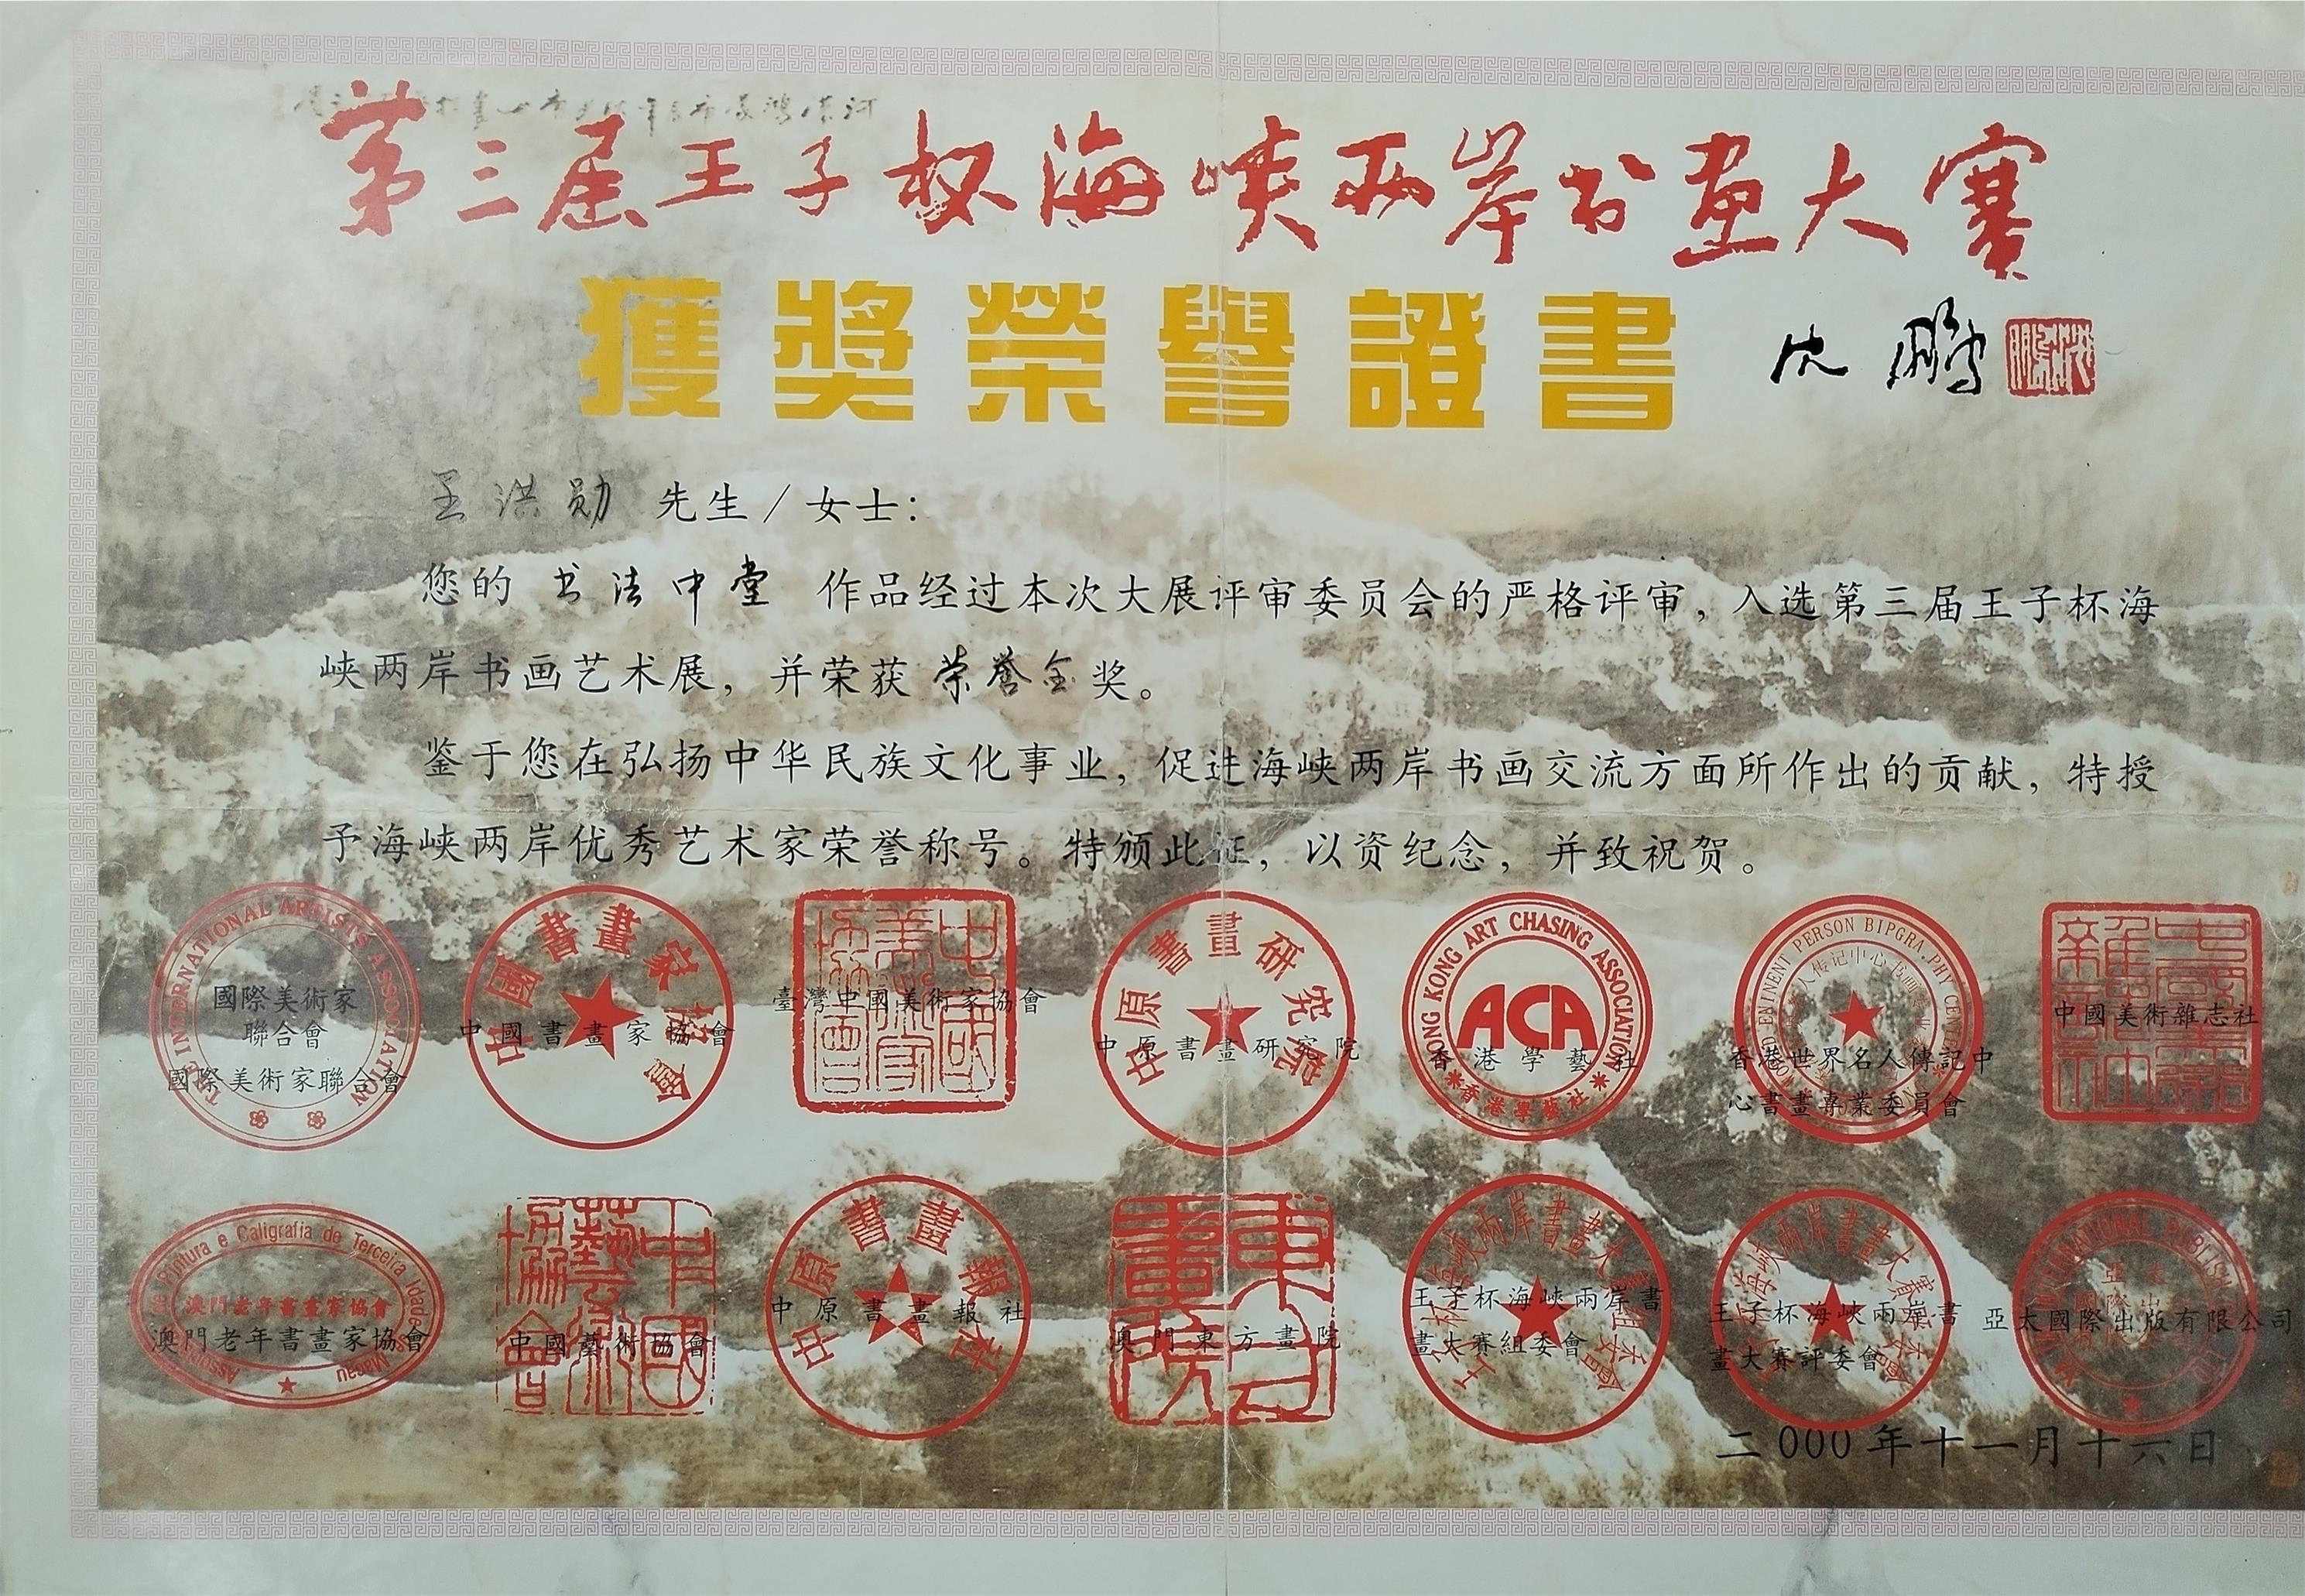 第三届王子杯海峡两岸书画大赛
獲獎榮譽證書
沈鹏
王洪勋 先生/女士：
您的 书法中堂 作品经过本次大展评审委员会的严格评审，入选第三届王子杯海
峡两岸书画艺术展，并荣获 荣誉金 奖。
鉴于您在弘扬中华民族文化事业，促进海峡两岸书画交流方面所作出的贡献，特授
予海峡两岸优秀艺术家荣誉称号。特颁此证，以资纪念，并致祝贺。
THE INTERNATIONAL ARTISTS ASSOCIATION
國際美術家
聯合會
國際美術家聯合會
中國書畫家協會
中國書畫家協會
中國美術家協會
臺灣中國美術家協會
中原書畫研究院
中原書畫研究院
HONG KONG ART CHASING ASSOCIATION
ACA
香港學藝社
香港學藝社
EMINENT PERSON BIPGRA.PHY CENTER
香港世界名人傳記中
心書畫專業委員會
中國美術雜志社
Pintura e Caligrafia de Terceira Idade de Macau
澳門老年書畫家協會
澳門老年書畫家協會
中國藝術協會
中國藝術協會
中原書畫報社
中原書畫報社
東方畫院
澳門東方畫院
王子杯海峽兩岸書畫大賽組委會
王子杯海峽兩岸書
畫大賽組委會
王子杯海峽兩岸書畫大賽評委會
王子杯海峽兩岸書
畫大賽評委會
亞太國際出版有限公司
二000年十一月十六日